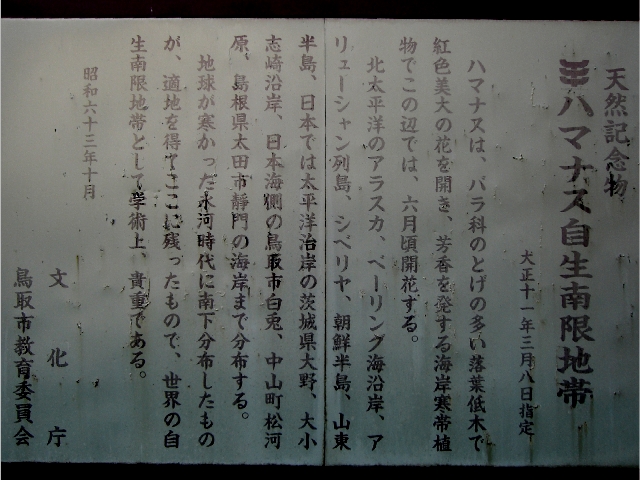 天然記念物
ハマナス自生南限地帯
大正十一年三月八日指定
ハマナスは、バラ科のとげの多い落葉低木で
紅色美大の花を開き、芳香を発する海岸寒帯植
物でこの辺では、六月頃開花する。
北太平洋のアラスカ、ベーリング海沿岸、ア
リューシャン列島、シベリヤ、朝鮮半島、山東
半島、日本では太平洋沿岸の茨城県大野、大小
志崎沿岸、日本海側の鳥取市白兎、中山町松河
原、島根県太田市静間の海岸まで分布する。
地球が寒かった氷河時代に南下分布したもの
が、適地を得てここに残ったもので、世界の自
生南限地帯として学術上、貴重である。
昭和六十三年十月
文化庁
鳥取市教育委員会